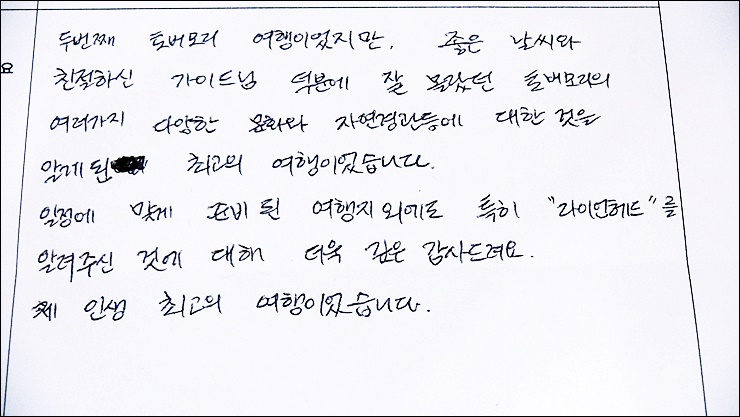 두번째 토버모리 여행이었지만, 좋은 날씨와
친절하신 가이드님 덕분에 잘 몰랐던 토버모리의
여러가지 다양한 문화와 자연경관등에 대한 것을
알게 된 최고의 여행이었습니다.
일정에 맞게 준비 된 여행지 외에도 특히 "라이언헤드"를
알려주신 것에 대해 더욱 깊은 감사드려요.
제 인생 최고의 여행이었습니다.
요